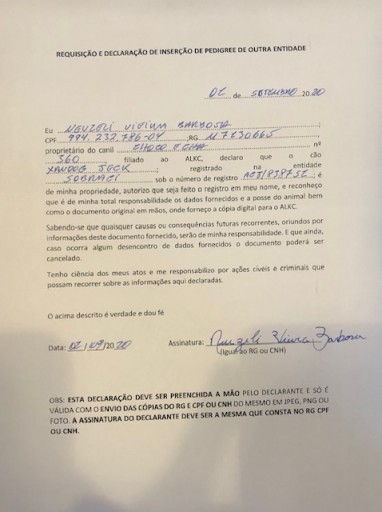 REQUISIÇÃO E DECLARAÇÃO DE INSERÇÃO DE PEDIGREE DE OUTRA ENTIDADE
02 de SETEMBRO 20 20
Eu NEUZELI VIEIRA BARBOSA
CPF 994.232.786-04 RG M7230665
proprietário do canil nº
360 filiado ao ALKC, declaro que o cão
XANDOR JECK registrado na entidade
SOBRACI sob o número de registro e
de minha propriedade, autorizo que seja feito o registro em meu nome, e reconheço
que é de minha total responsabilidade os dados fornecidos e a posse do animal bem
como o documento original em mãos, onde forneço a cópia digital para o ALKC.
Sabendo-se que quaisquer causas ou consequências futuras recorrentes, oriundos por
informações deste documento fornecido, serão de minha responsabilidade. E que ainda,
caso ocorra algum desencontro de dados fornecidos o documento poderá ser
cancelado.
Tenho ciência dos meus atos e me responsabilizo por ações cíveis e criminais que
possam recorrer sobre as informações aqui declaradas.
O acima descrito é verdade e dou fé
Data: 02/09/20 20 Assinatura: Neuzeli Vieira Barbosa
(Igual ao RG ou CNH)
OBS: ESTA DECLARAÇÃO DEVE SER PREENCHIDA A MÃO PELO DECLARANTE E SÓ É
VÁLIDA COM O ENVIO DAS CÓPIAS DO RG E CPF OU CNH DO MESMO EM JPEG, PNG OU
FOTO. A ASSINATURA DO DECLARANTE DEVE SER A MESMA QUE CONSTA NO RG CPF
OU CNH.